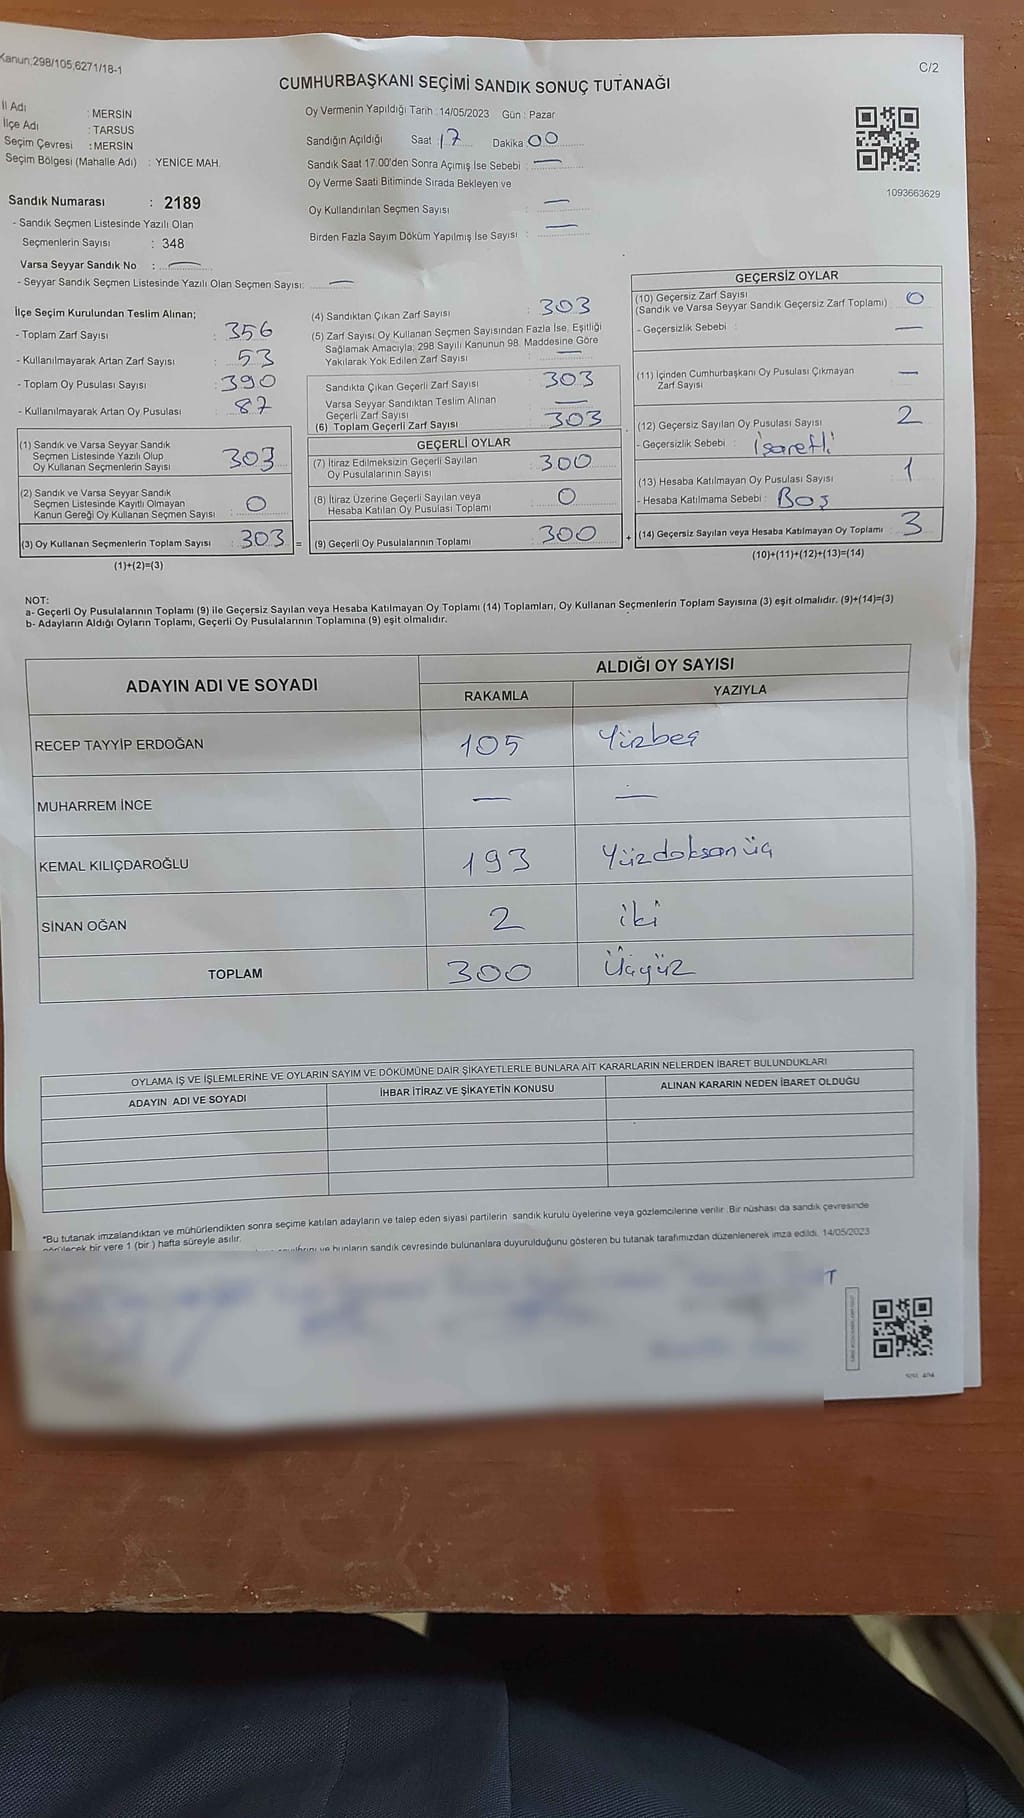 Kanun;298/105;6271/18-1
C/2
CUMHURBAŞKANI SEÇİMİ SANDIK SONUÇ TUTANAĞI
İl Adı : MERSİN
İlçe Adı : TARSUS
Seçim Çevresi : MERSİN
Seçim Bölgesi (Mahalle Adı) : YENİCE MAH.
Sandık Numarası : 2189
- Sandık Seçmen Listesinde Yazılı Olan
Seçmenlerin Sayısı : 348
Varsa Seyyar Sandık No : —
- Seyyar Sandık Seçmen Listesinde Yazılı Olan Seçmen Sayısı: —
Oy Vermenin Yapıldığı Tarih : 14/05/2023 Gün : Pazar
Sandığın Açıldığı Saat : 17 Dakika 00
Sandık Saat 17:00'den Sonra Açımış İse Sebebi : —
Oy Verme Saati Bitiminde Sırada Bekleyen ve
Oy Kullandırılan Seçmen Sayısı : —
Birden Fazla Sayım Döküm Yapılmış İse Sayısı : —
1093663629
İlçe Seçim Kurulundan Teslim Alınan;
- Toplam Zarf Sayısı : 356
- Kullanılmayarak Artan Zarf Sayısı : 53
- Toplam Oy Pusulası Sayısı : 390
- Kullanılmayarak Artan Oy Pusulası : 87
(1) Sandık ve Varsa Seyyar Sandık
Seçmen Listesinde Yazılı Olup
Oy Kullanan Seçmenlerin Sayısı : 303
(2) Sandık ve Varsa Seyyar Sandık
Seçmen Listesinde Kayıtlı Olmayan
Kanun Gereği Oy Kullanan Seçmen Sayısı : 0
(3) Oy Kullanan Seçmenlerin Toplam Sayısı : 303 =
(1)+(2)=(3)
(4) Sandıktan Çıkan Zarf Sayısı : 303
(5) Zarf Sayısı Oy Kullanan Seçmen Sayısından Fazla İse, Eşitliği
Sağlamak Amacıyla; 298 Sayılı Kanunun 98. Maddesine Göre
Yakılarak Yok Edilen Zarf Sayısı : —
Sandıkta Çıkan Geçerli Zarf Sayısı : 303
Varsa Seyyar Sandıktan Teslim Alınan
Geçerli Zarf Sayısı : —
(6) Toplam Geçerli Zarf Sayısı : 303
GEÇERLİ OYLAR
(7) İtiraz Edilmeksizin Geçerli Sayılan
Oy Pusulalarının Sayısı : 300
(8) İtiraz Üzerine Geçerli Sayılan veya
Hesaba Katılan Oy Pusulası Toplamı : 0
(9) Geçerli Oy Pusulalarının Toplamı : 300 +
GEÇERSİZ OYLAR
(10) Geçersiz Zarf Sayısı
(Sandık ve Varsa Seyyar Sandık Geçersiz Zarf Toplamı) : 0
- Geçersizlik Sebebi : —
(11) İçinden Cumhurbaşkanı Oy Pusulası Çıkmayan
Zarf Sayısı : —
(12) Geçersiz Sayılan Oy Pusulası Sayısı : 2
- Geçersizlik Sebebi : İşaretli
(13) Hesaba Katılmayan Oy Pusulası Sayısı : 1
- Hesaba Katılmama Sebebi : Boş
(14) Geçersiz Sayılan veya Hesaba Katılmayan Oy Toplamı : 3
(10)+(11)+(12)+(13)=(14)
NOT:
a- Geçerli Oy Pusulalarının Toplamı (9) ile Geçersiz Sayılan veya Hesaba Katılmayan Oy Toplamı (14) Toplamları, Oy Kullanan Seçmenlerin Toplam Sayısına (3) eşit olmalıdır. (9)+(14)=(3)
b- Adayların Aldığı Oyların Toplamı, Geçerli Oy Pusulalarının Toplamına (9) eşit olmalıdır.
ADAYIN ADI VE SOYADI
ALDIĞI OY SAYISI
RAKAMLA YAZIYLA
RECEP TAYYİP ERDOĞAN 105 Yüzbeş
MUHARREM İNCE — —
KEMAL KILIÇDAROĞLU 193 Yüzdoksanüç
SİNAN OĞAN 2 iki
TOPLAM 300 Üçyüz
OYLAMA İŞ VE İŞLEMLERİNE VE OYLARIN SAYIM VE DÖKÜMÜNE DAİR ŞİKAYETLERLE BUNLARA AİT KARARLARIN NELERDEN İBARET BULUNDUKLARI
ADAYIN ADI VE SOYADI İHBAR İTİRAZ VE ŞİKAYETİN KONUSU ALINAN KARARIN NEDEN İBARET OLDUĞU
*Bu tutanak imzalandıktan ve mühürlendikten sonra seçime katılan adayların ve talep eden siyasi partilerin sandık kurulu üyelerine veya gözlemcilerine verilir. Bir nüshası da sandık çevresinde
görülecek bir yere 1 (bir ) hafta süreyle asılır.
ve bunların sandık çevresinde bulunanlara duyurulduğunu gösteren bu tutanak tarafımızdan düzenlenerek imza edildi. 14/05/2023